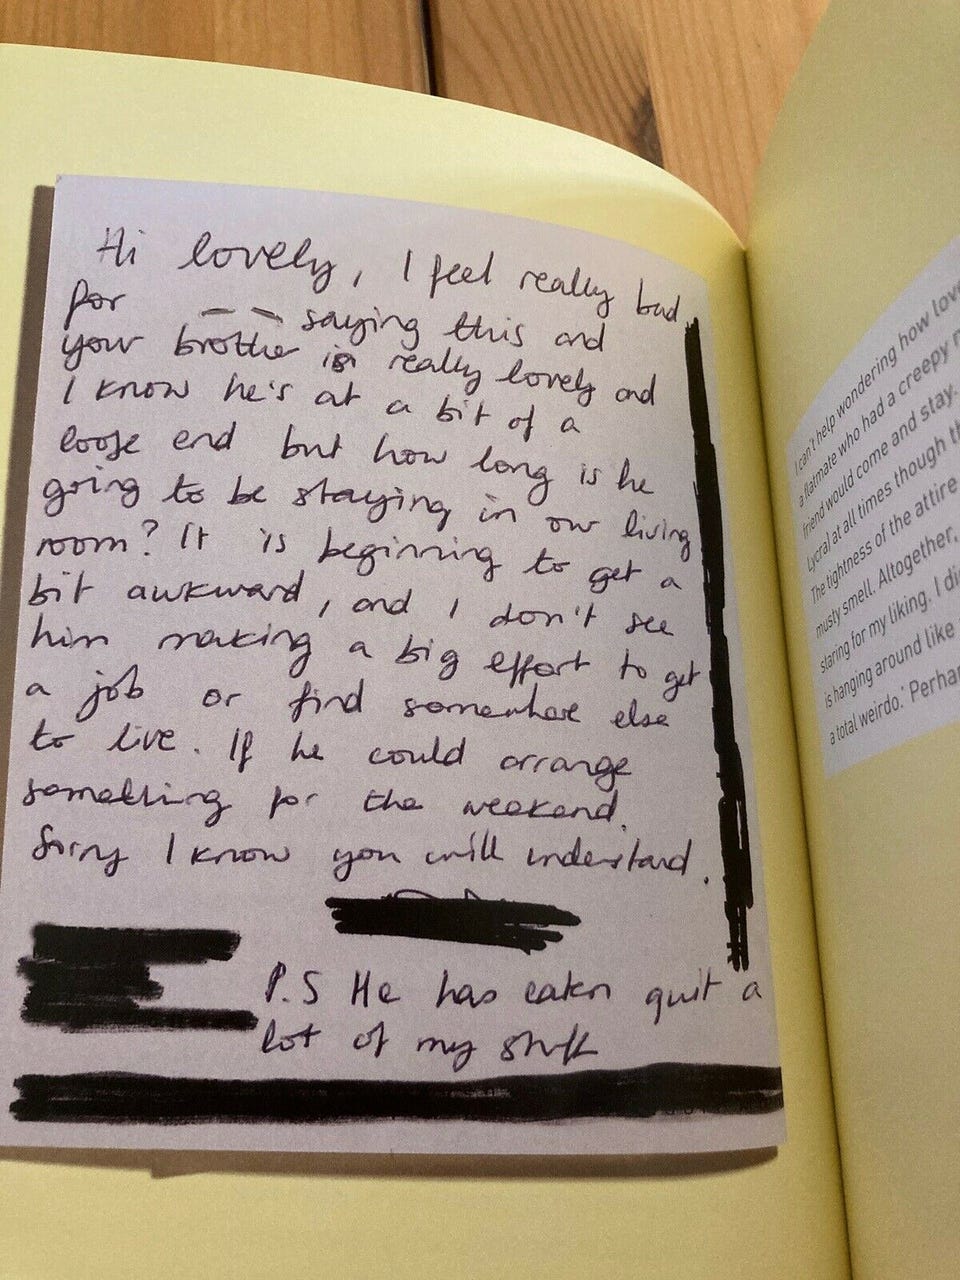 Hi lovely, I feel really bad
for — — saying this and
your brothe is really lovely and
I know he's at a bit of a
loose end but how long is he
going to be staying in our living
room? It is beginning to get a
bit awkward, and I don't see
him making a big effort to get
a job or find somewhere else
to live. If he could arrange
something for the weekend.
Sorry I know you will understand.
P.S He has eaten quit a
lot of my stuff
I can't help wondering how
a flatmate who had a creepy
friend would come and stay.
Lycra) at all times though
The tightness of the attire
musty smell. Altogether,
staring for my liking. I
is hanging around like
a total weirdo.'